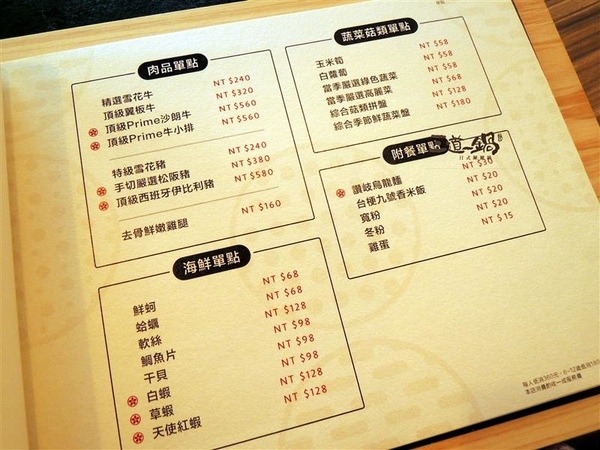 肉品單點
精選雪花牛 NT $240
頂級翼板牛 NT $320
頂級Prime沙朗牛 NT $560
頂級Prime牛小排 NT $560
特級雪花豬 NT $240
手切嚴選松阪豬 NT $380
頂級西班牙伊比利豬 NT $580
去骨鮮嫩雞腿 NT $160
海鮮單點
鮮蚵 NT $68
蛤蠣 NT $68
軟絲 NT $128
鯛魚片 NT $98
干貝 NT $98
白蝦 NT $98
草蝦 NT $128
天使紅蝦 NT $128
蔬菜菇類單點
玉米筍 NT $58
白蘿蔔 NT $58
當季嚴選綠色蔬菜 NT $58
當季嚴選高麗菜 NT $68
綜合菇類拼盤 NT $128
綜合季節鮮蔬菜盤 NT $180
附餐單點
道一鍋
讚岐烏龍麵 NT $30
台梗九號香米飯 NT $20
寬粉 NT $20
冬粉 NT $20
雞蛋 NT $15
每人低消360元，6-12歲低消180